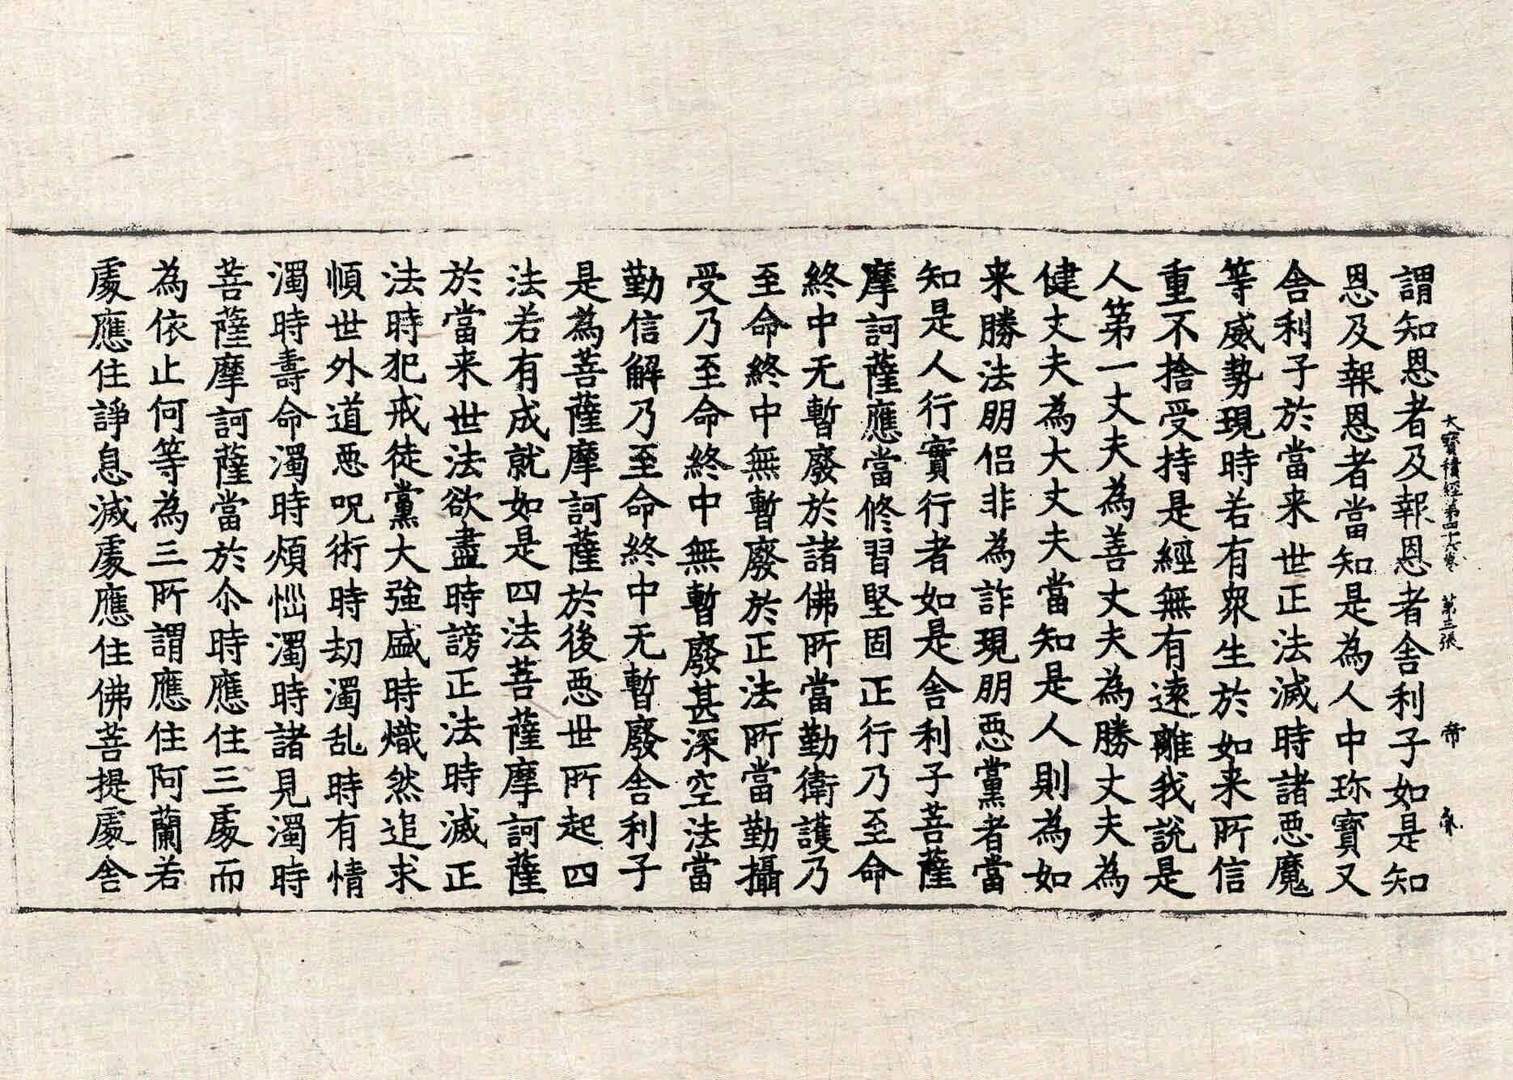 大寶積經第四十六卷 第三張 帝
謂知恩者及報恩者舎利子如是知
恩及報恩者當知是為人中珎寶又
舎利子於當来世正法滅時諸惡魔
等威勢現時若有衆生於如来所信
重不捨受持是經無有遠離我説是
人第一丈夫為善丈夫為勝丈夫為
健丈夫為大丈夫當知是人則為如
来勝法朋侣非為詐現朋惡黨者當
知是人行實行者如是舎利子菩薩
摩訶薩應當修習堅固正行乃至命
終中无暫廢於諸佛所當勤衛護乃
至命終中無暫廢於正法所當勤攝
受乃至命終中無暫廢甚深空法當
勤信解乃至命終中无暫廢舎利子
是為菩薩摩訶薩於後惡世所起四
法若有成就如是四法菩薩摩訶薩
於當来世法欲盡時謗正法時滅正
法時犯戒徒黨大強盛時熾然追求
順世外道惡呪術時劫濁乱時有情
濁時壽命濁時煩惱濁時諸見濁時
菩薩摩訶薩當於尒時應住三處而
為依止何等為三所謂應住阿蘭若
處應住諍息滅處應住佛菩提處舎